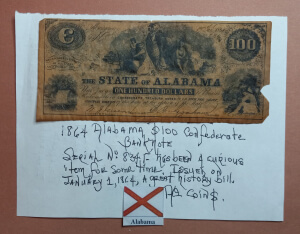 100
THE STATE OF ALABAMA
ONE HUNDRED DOLLARS
1864 Alabama $100 Confederate
Banknote
Serial No has been a curious
item for some time. Issued on
January 1, 1864, a great history bill.
Coins.
Alabama